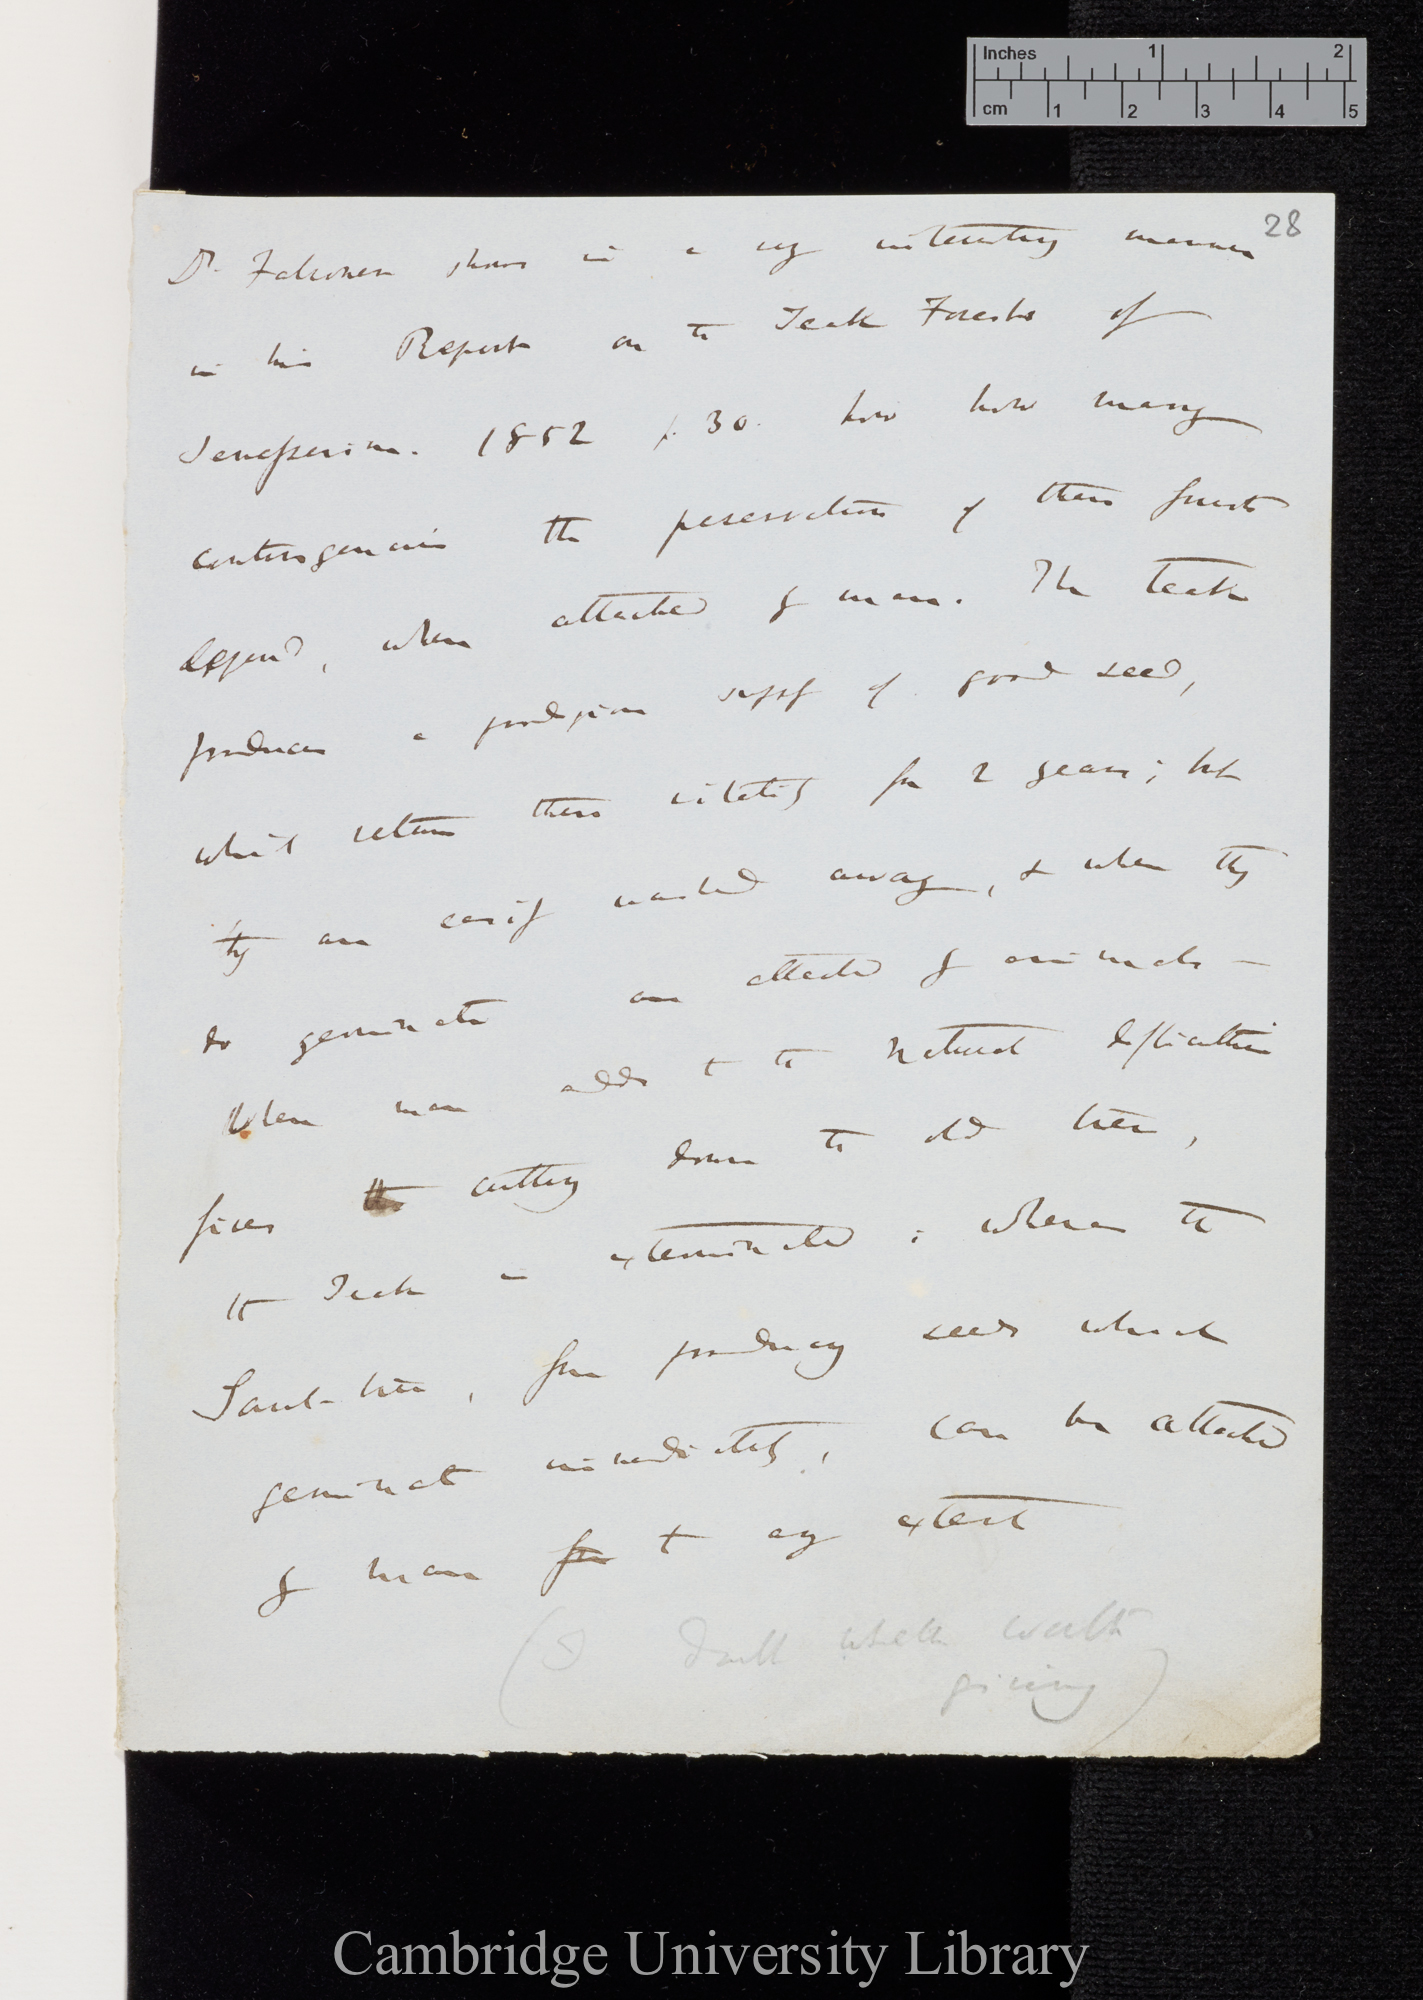 Inches 1 2
cm 1 2 3 4 5
28
Dr. Falconer shows in a very interesting manner
in his Report on the Teak Forests of
Tenasserim. 1852 p. 30. how how many
contingencies the preservation of these forests
depend, when attacked by man. The teak
produces a prodigious supply of good seed,
which retain their vitality for 2 years; but
they are easily washed away, & when they
do germinate are attacked by animals —
When man adds to the natural difficulties
fires the cutting down the old trees,
the Teak is exterminated; whereas the
Saul-tree, from producing seeds which
germinate immediately, can be attacked
by man for to any extent
(I doubt whether worth
giving)
Cambridge University Library